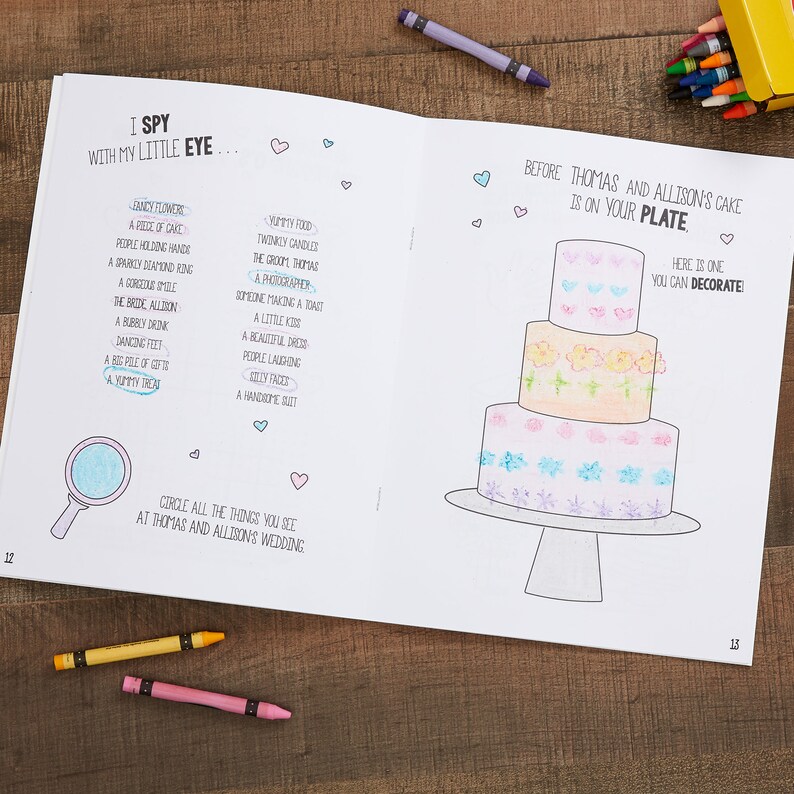 I SPY
WITH MY LITTLE EYE . . .
FANCY FLOWERS
A PIECE OF CAKE
PEOPLE HOLDING HANDS
A SPARKLY DIAMOND RING
A GORGEOUS SMILE
THE BRIDE, ALLISON
A BUBBLY DRINK
DANCING FEET
A BIG PILE OF GIFTS
A YUMMY TREAT
YUMMY FOOD
TWINKLY CANDLES
THE GROOM, THOMAS
A PHOTOGRAPHER
SOMEONE MAKING A TOAST
A LITTLE KISS
A BEAUTIFUL DRESS
PEOPLE LAUGHING
SILLY FACES
A HANDSOME SUIT
CIRCLE ALL THE THINGS YOU SEE
AT THOMAS AND ALLISON'S WEDDING.
12
BEFORE THOMAS AND ALLISON'S CAKE
IS ON YOUR PLATE,
HERE IS ONE
YOU CAN DECORATE!
13